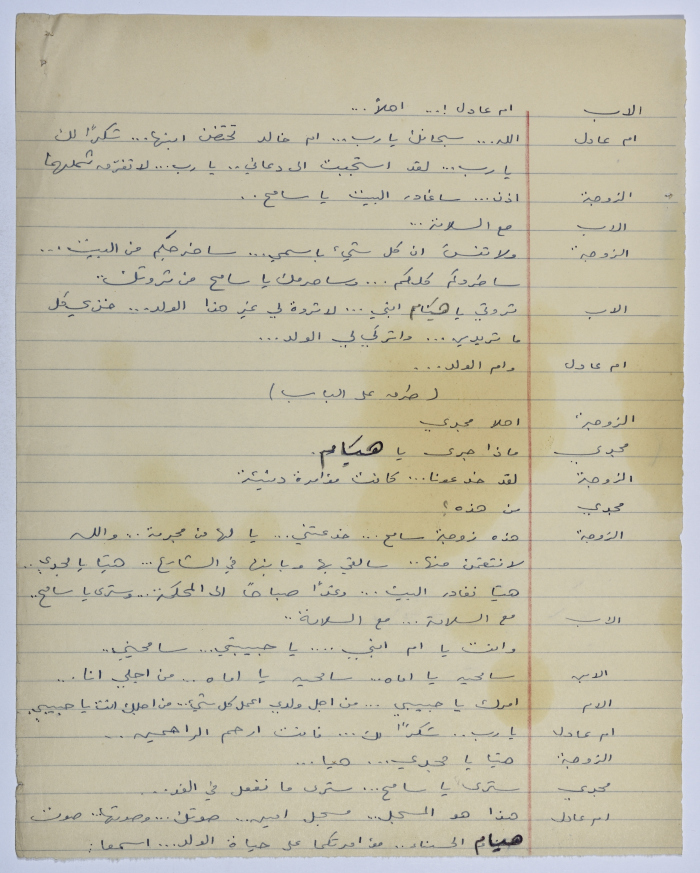 الاب ام عادل !... اهلاً...
ام عادل الله... سبحانك يا رب... ام خالد تحتضن ابنها... شكراً لك
يا رب... لقد استجبت الى دعائي.. يا رب... لا تفرق شملهما
الزوجة اذن... ساغادر البيت يا سامح..
الاب مع السلامة...
الزوجة ولا تنس ان كل شيء باسمي... ساخرجكم من البيت...
ساطردكم كلكم... وساحرمك يا سامح من ثروتك..
الاب ثروتي يا هيام ابني... لا ثروة لي غير هذا الولد... خذي كل
ما تريدين... واتركي لي الولد...
ام عادل وام الولد...
( طرق على الباب )
الزوجة اهلا مجدي
مجدي ماذا جرى يا هيام.
الزوجة لقد خدعونا... كانت مؤامرة دنيئة
مجدي من هذه؟
الزوجة هذه زوجة سامح... خدعتني... يا لها من مجرمة.. والله
لانتقمن منها.. سالقي بها وبابنها في الشارع... هيا يا مجدي..
هيا نغادر البيت... وغداً صباحاً الى المحكمة... وسترى يا سامح..
الاب مع السلامة... مع السلامة..
وانت يا ام ابني.... يا حبيبتي... سامحيني..
الابن سامحيه يا اماه... سامحيه يا اماه... من اجلي انا...
الام امرك يا حبيبي... من اجل ولدي اعمل كل شيء... من اجلك انت يا حبيبي..
ام عادل يا رب.. شكراً لك... فانت ارحم الراحمين..
الزوجة هيا يا مجدي... هيا...
مجدي سترى يا سامح... سترى ما نفعل في الغد...
ام عادل هذا هو المسجل.. مسجل امين... صوتك... وصوتها.. صوت
هيام الحسناء.. مؤامرتكما على حياة الولد... اسمعا: